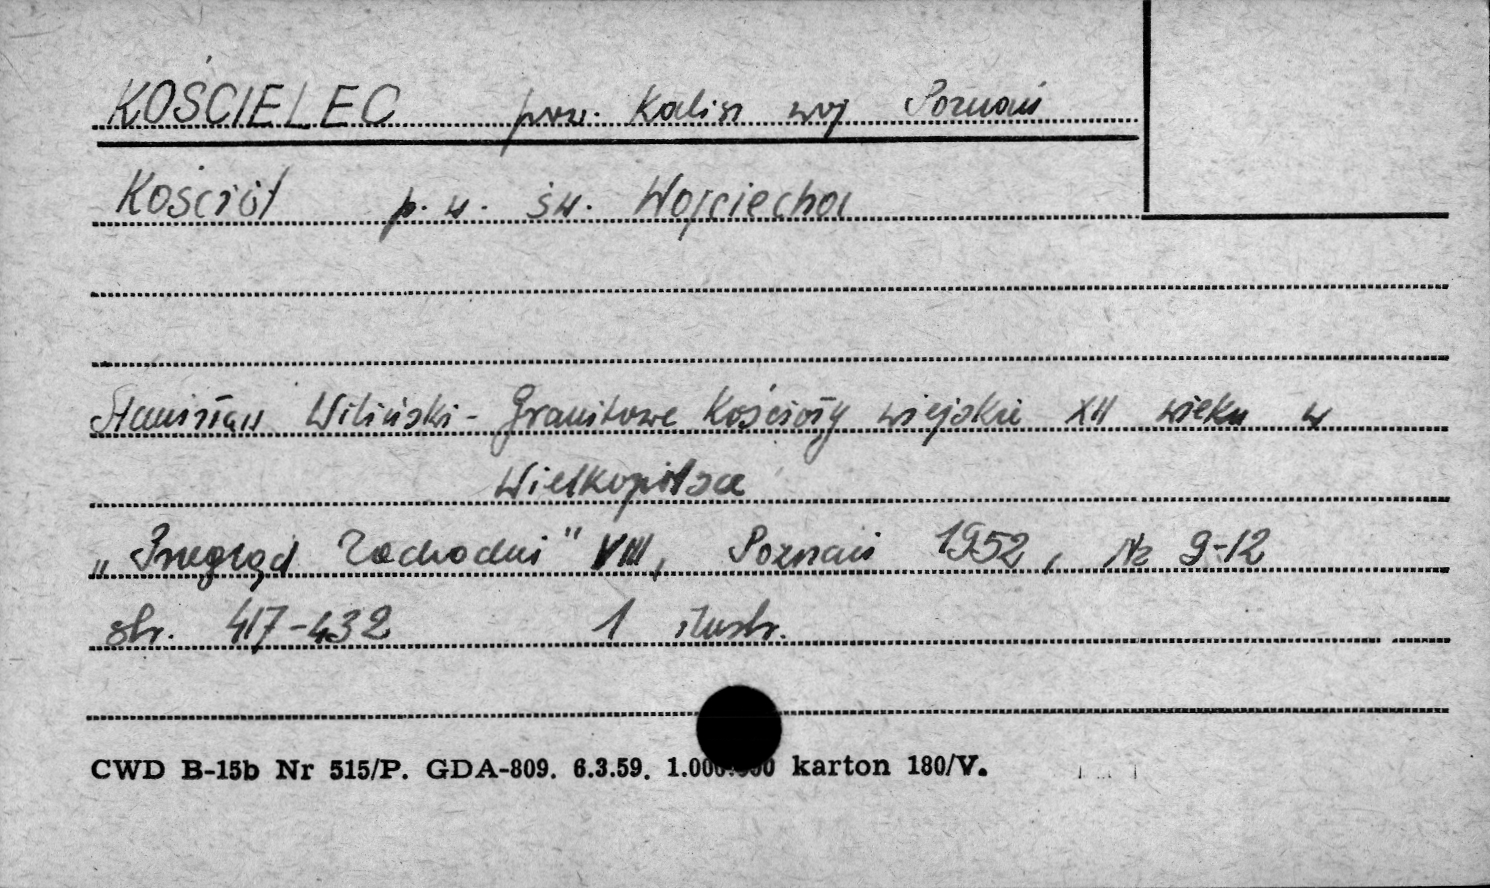 KOŚCIELEC pow. Kalisz woj Poznań
Kościół p. w. św. Wojciecha
Stanisław Wiliński - Granitowe Kościoły wiejskie XII wieku w
Wielkopolsce
„Przegląd Zachodni" VIII, Poznań 1952, Nr 9-12
str. 417-432 1 ilustr.
CWD B-15b Nr 515/P. GDA-809. 6.3.59. 1.000.000 karton 180/V.